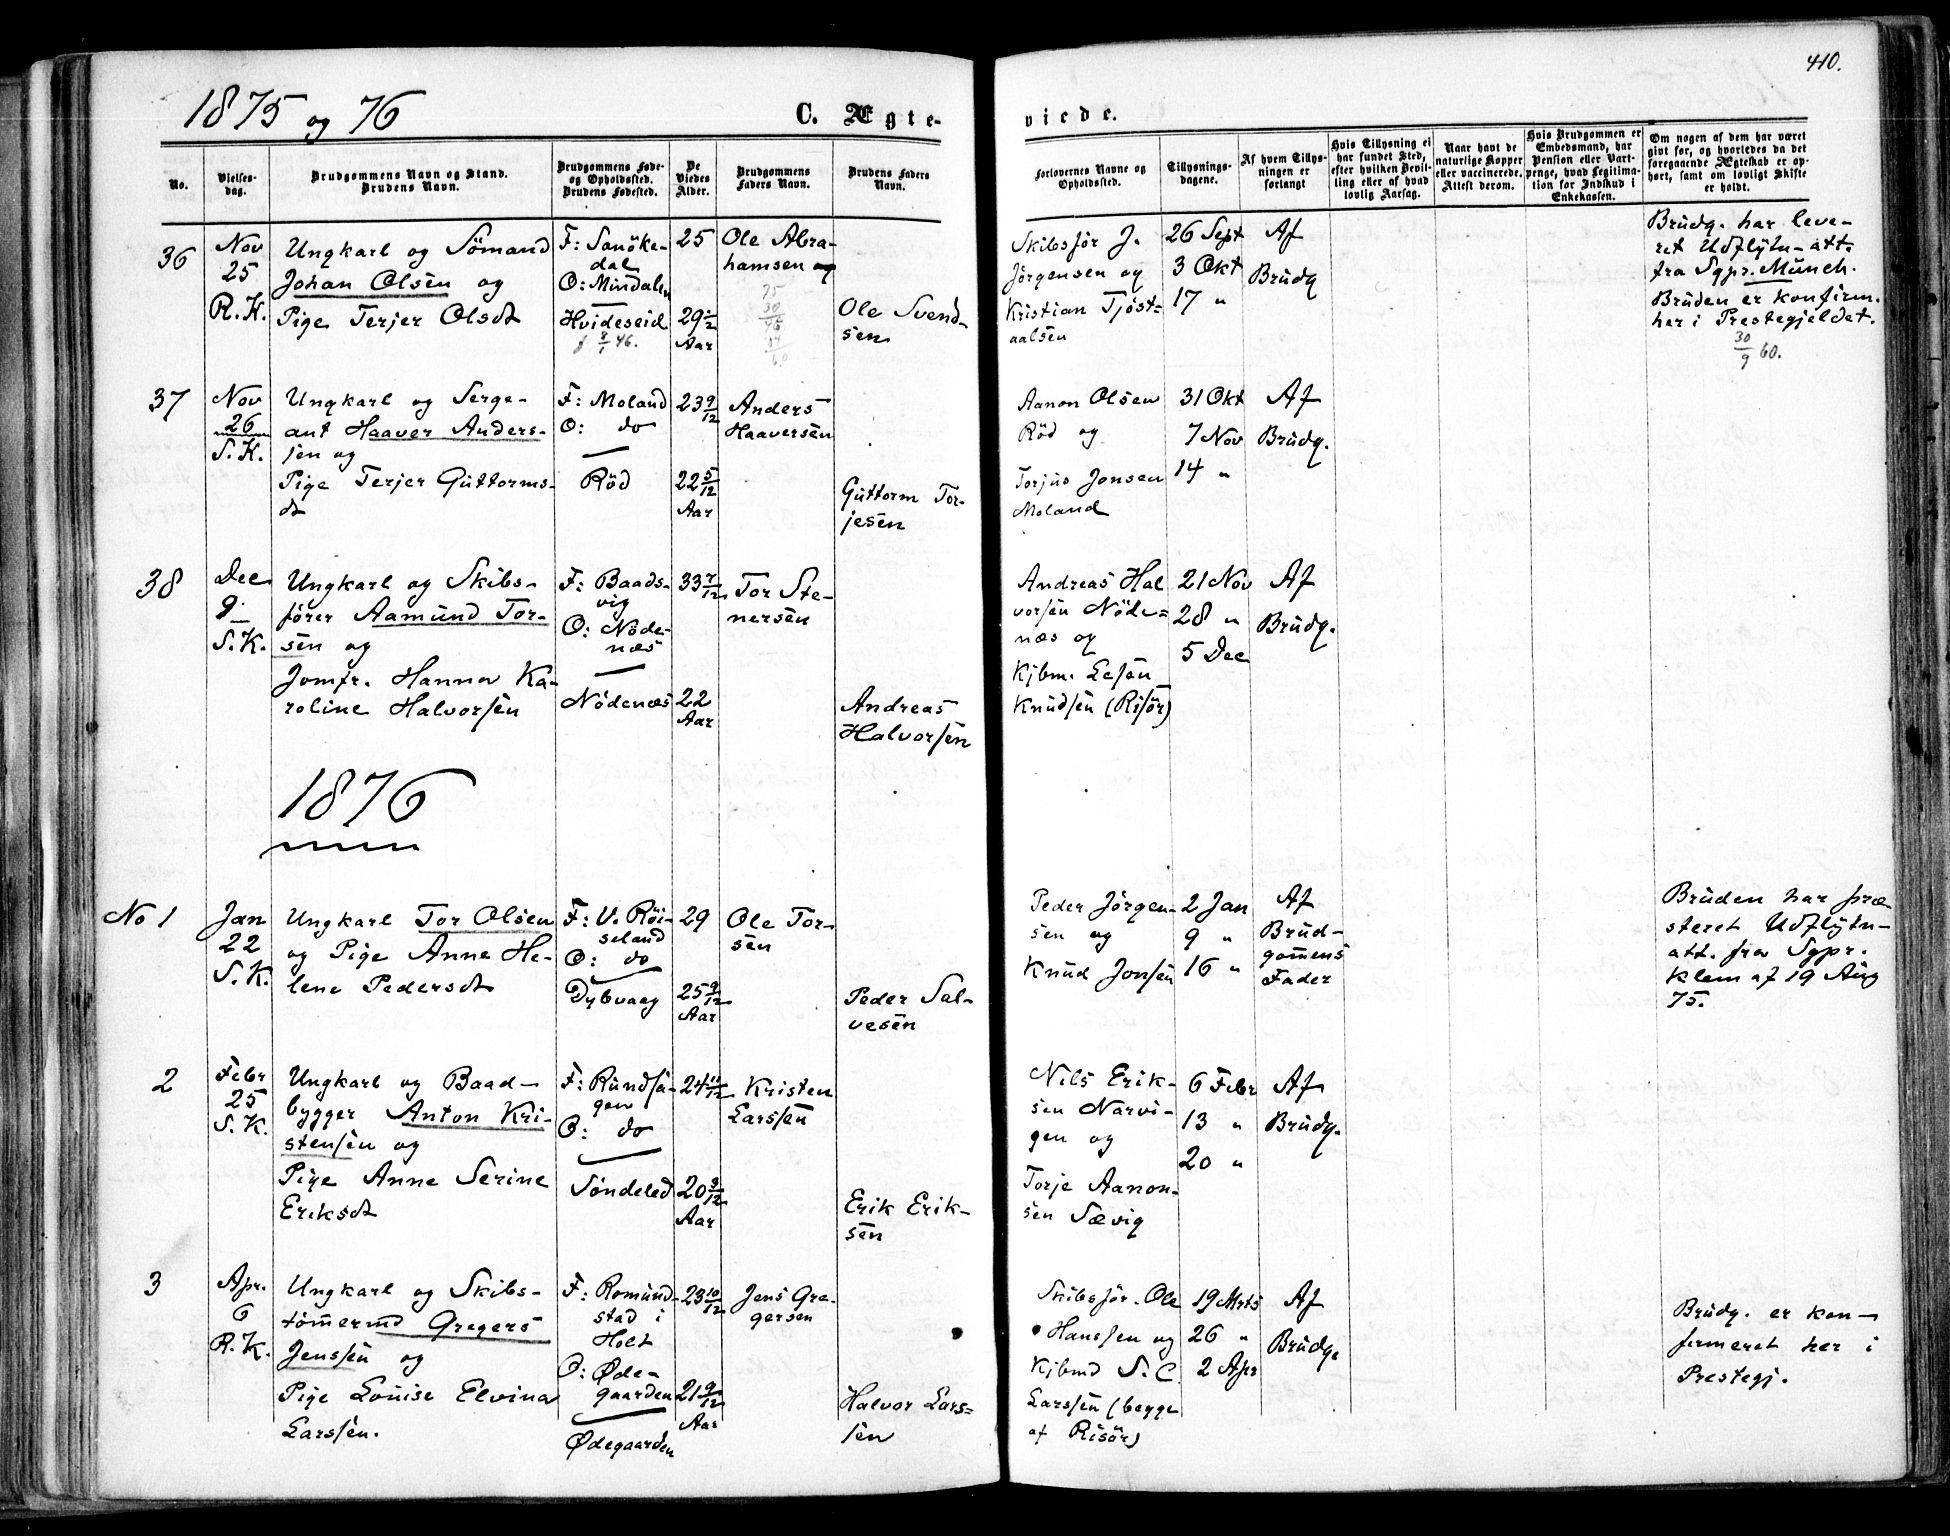 410.
1875 og 76
C. Ægte-
viede.
No.
Vielses-
dag.
Brudgommens Navn og Stand.
Brudens Navn.
Brudgommens Føde-
og Opholdssted.
Brudens Fødested.
De
Viedes
Alder.
Brudgommens
Faders Navn.
Brudens Faders
Navn.
Forlovernes Navne og
Opholdssted.
Tillysnings-
dagene.
Af hvem Tillys-
ningen er
forlangt
Hvis Tillysning ei
har fundet Sted,
efter hvilken Bevil-
ling eller af hvad
lovlig Aarsag.
Naar havt de
naturlige Kopper
eller vaccinerede.
Attest derom.
Hvis Brudgommen er
Embedsmand, har
Pension eller Vart-
penge, hvad Legitima-
tion for Indskud i
Enkekassen.
Om nogen af dem har været
gift før, og hvorledes da det
foregaaende Ægteskab er op-
hørt, samt om lovligt Skifte
er holdt.
36
Nov
25
R.K.
Ungkarl og Sömand
Johan Olsen og
Pige Terjer Olsdt
F: Sanöke-
dal
O: Mindalen
Hvideseid
f 8/1 46.
25
29 /12
Aar
Ole Abra-
hamsen og
75
30
45
60
Ole Svend-
sen
Skibsför J.
Jörgensen og
Kristian Tjöst-
aalsen
26 Sept
3 Okt
17 "
Af
Brudg
Brudg. har leve-
ret Udflytn-att.
fra Sgpr. Münch.
Bruden er konfirm.
her i Prestegjeldet.
30/9 60.
37
Nov
26
S.K.
Ungkarl og Serge-
ant Haaver Anders-
sen og
Pige Terjer Guttorms-
dt
F: Moland
O: do
Röd
23 9/12
22 5/12
Aar
Anders
Haaversen
Guttorm Tor-
jesen
Aanon Olsen
Röd og
Torjus Jonsen
Moland
31 Okt
7 Nov
14 "
Af
Brudg.
38
Dec
9
S.K.
Ungkarl og Skibs-
fører Aamund Tor-
sen og
Jomfr. Hanna Ka-
roline Halvorsen
F: Baads-
vig
O: Nöde-
næs
Nödenæs
33 7/12
22
Aar
Tor Ste-
nersen
Andreas
Halvorsen
Andreas Hal
vorsen Nöde-
næs og
Kjbm. Eesen
Knudsen (Risör)
21 Nov
28 "
5 Dec
Af
Brudg.
1876
No 1
Jan
22
S.K.
Ungkarl Tor Olsen
og Pige Anne He-
lene Pedersdt
F: V. Röi-
seland
O: do
Dybvaag
29
25 9/12
Aar
Ole Tor-
sen
Peder Sal-
vesen
Peder Jörgen-
sen og
Knud Jonsen
2 Jan
9 "
16 "
Af
Brud-
gomens
Fader
Bruden har præ-
steret Udflytn-
att. fra Sgpr.
Klem af 19 Aug
75.
2
Febr
25
S.K.
Ungkarl og Baad-
bygger Anton Kri-
stensen og
Pige Anne Serine
Eriksdt
F: Rundsa-
gen
O: do
Söndeled
24 11/12
20 3/12
Aar
Kristen
Larssen
Erik Erik-
sen
Nils Erik-
sen Narvi-
gen og
Torje Aanon-
sen Sævig
6 Febr
13 "
20 "
Af
Brudg.
3
Apr.
6
R.K.
Ungkarl og Skibs-
tömermd Gregers
Jenssen og
Pige Louise Elvina
Larssen.
F: Romund-
stad i
Holt
O: Øde-
gaarden
Ødegaarden
23 10/12
21 9/12
Aar
Jens Gre-
gersen
Halvor Lars-
sen
Skibsför. Ole
Hanssen og
Kjbmd S. C.
Larssen (begge
af Risör)
19 Mrts
26 "
2 Apr
Af
Brudg.
Brudg. er kon-
firmeret her i
Prestegj.